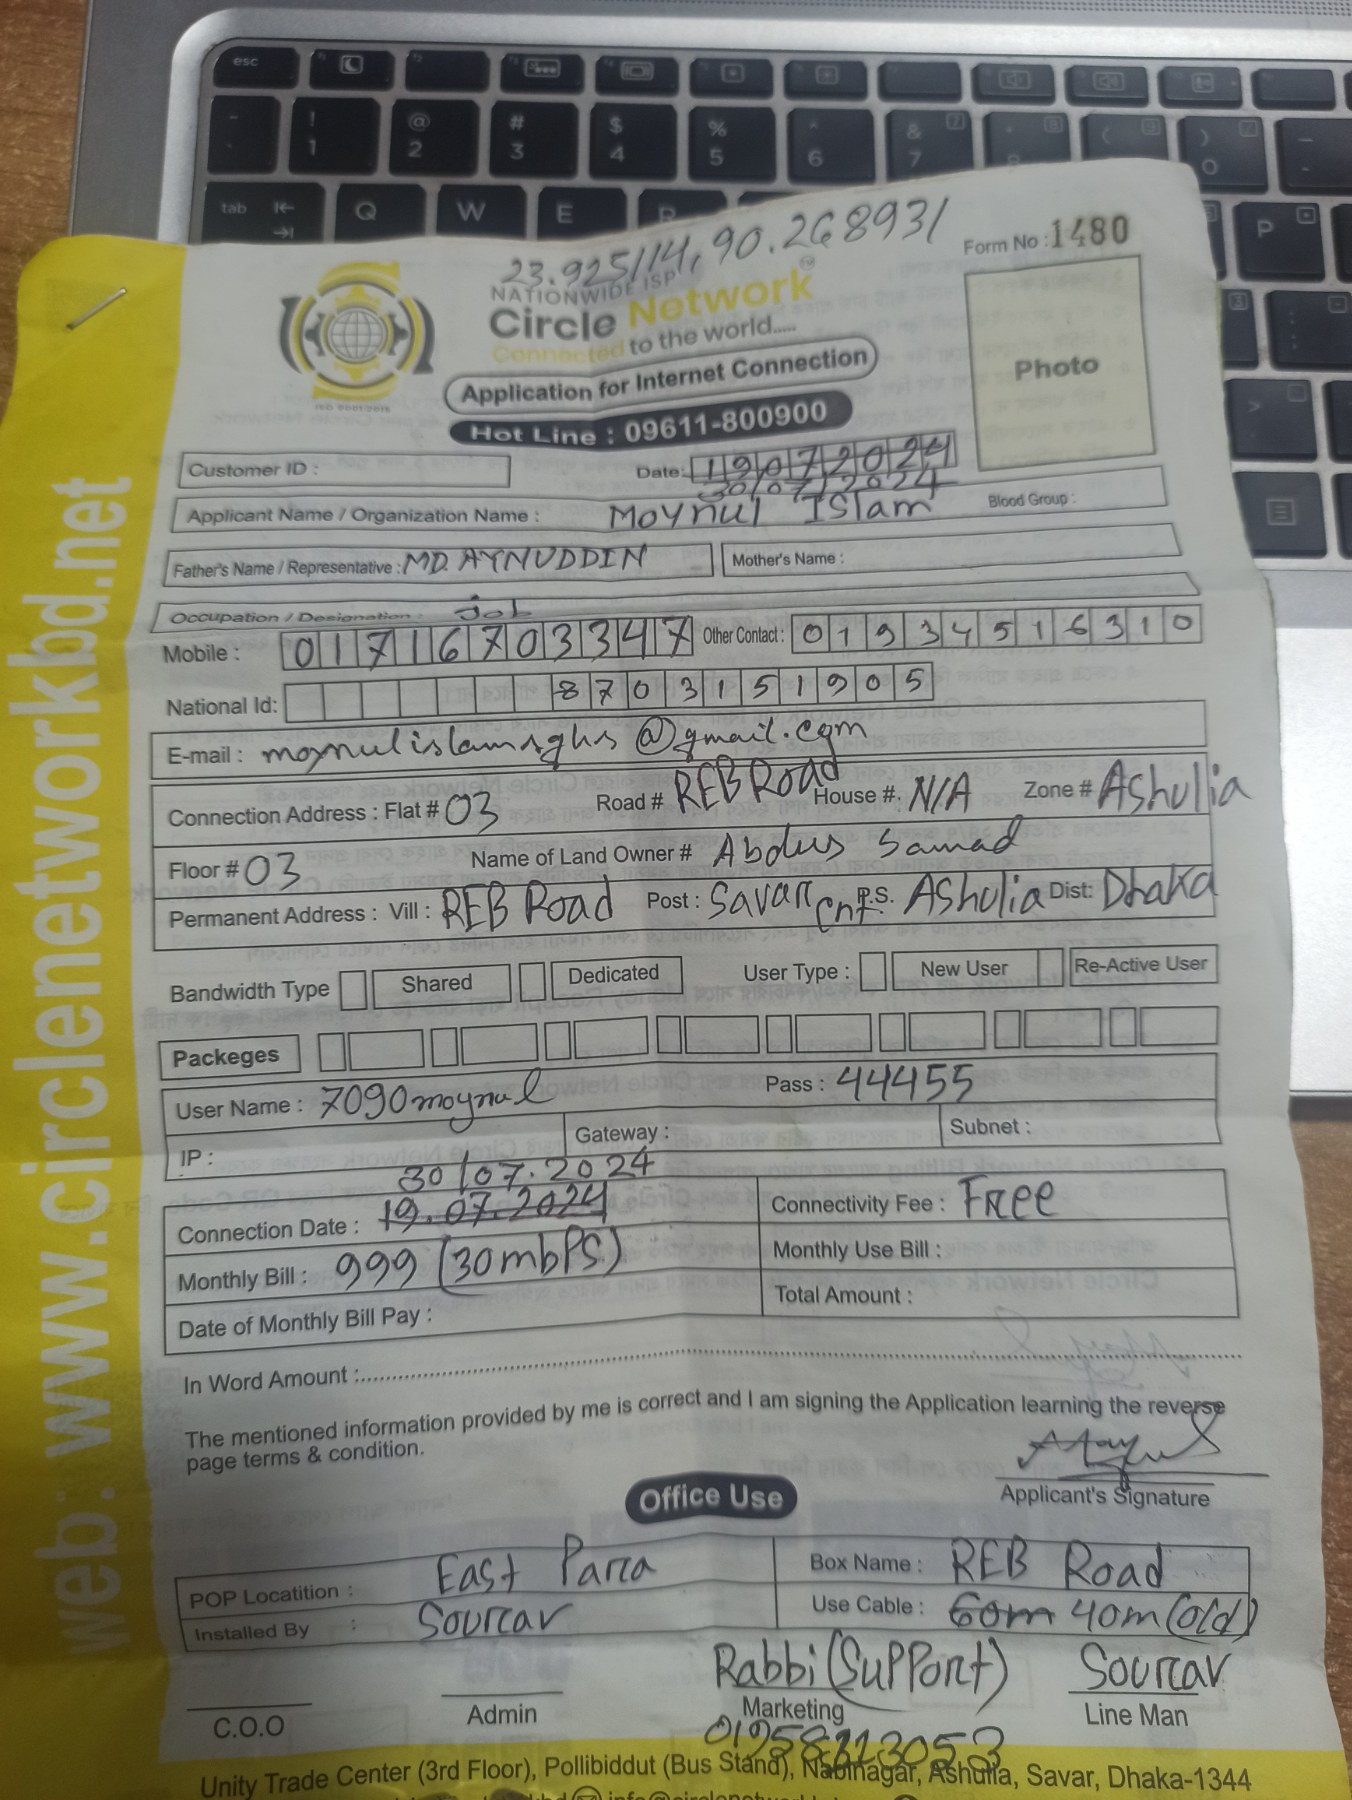 esc
! 1 @ 2 # 3 $ 4 % 5 ^ 6 & 7 ( ) 0
tab Q W E R P
23.925114, 90.268931
Form No : 1480
NATIONWIDE ISP
Circle Network
Connected to the world.....
Photo
Application for Internet Connection
Hot Line : 09611-800900
Customer ID : Date: 19072024
30/07/2024
Applicant Name / Organization Name : Moynul Islam Blood Group :
Father's Name / Representative : MD. AYNUDDIN Mother's Name :
Occupation / Designation : Job
Mobile : 01716703347 Other Contact : 01934516310
National Id: 8703151905
E-mail : @gmail.com
Connection Address : Flat # 03 Road # REB Road House #. N/A Zone # Ashulia
Floor # 03 Name of Land Owner # Abdus Samad
Permanent Address : Vill : REB Road Post : Savar Cnt P.S. Ashulia Dist: Dhaka
Bandwidth Type Shared Dedicated User Type : New User Re-Active User
Packeges
User Name : 7090moynul Pass : 44455
IP : Gateway : Subnet :
30/07.2024
Connection Date : 19.07.2024 Connectivity Fee : Free
Monthly Bill : 999 (30mbPS) Monthly Use Bill :
Date of Monthly Bill Pay : Total Amount :
In Word Amount :
The mentioned information provided by me is correct and I am signing the Application learning the reverse
page terms & condition.
Applicant's Signature
Office Use
POP Locatition : East Para Box Name : REB Road
Installed By : Sourav Use Cable : 60m 40m (old)
Rabbi (Support) Sourav
C.O.O Admin Marketing Line Man
Unity Trade Center (3rd Floor), Pollibiddut (Bus Stand), Nabinagar, Ashulia, Savar, Dhaka-1344
web: www.circlenetworkbd.net